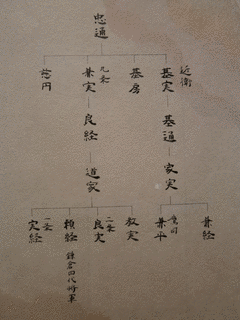 忠通
近衛
基実
基房
九条
兼実
慈円
基通
良経
家実
道家
兼経
鷹司
兼平
教実
二条
良実
頼経
鎌倉四代将軍
一条
実経